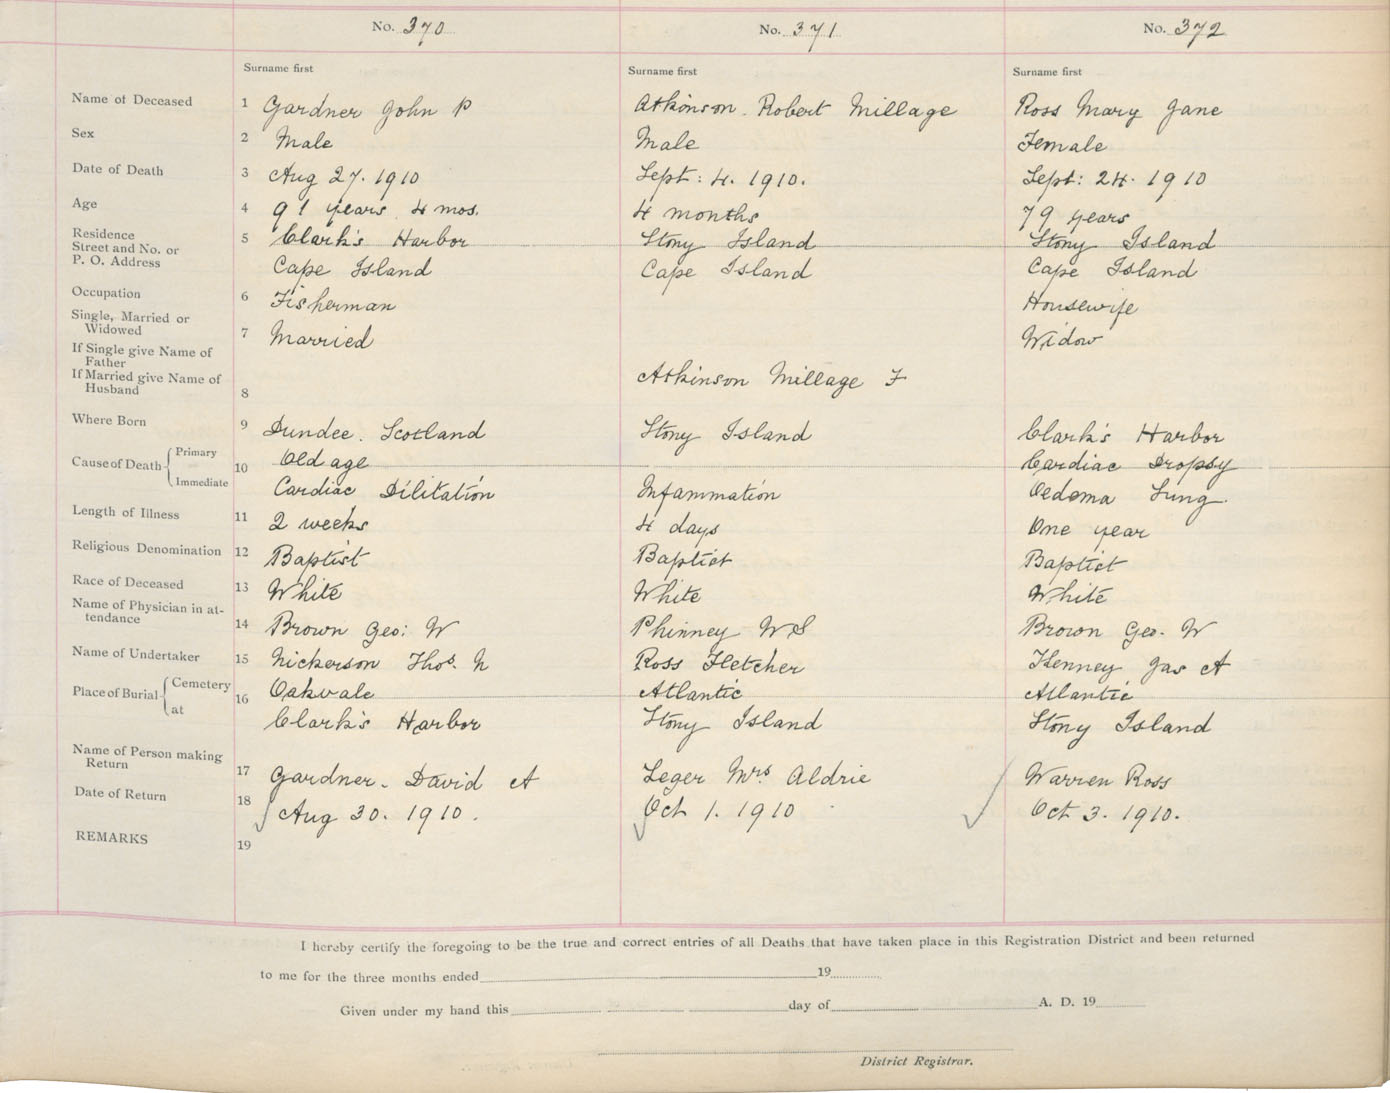 No. 370 No. 371 No. 372
Surname first Surname first Surname first
Name of Deceased 1 Gardner John P Atkinson. Robert Millage Ross Mary Jane
Sex 2 Male Male Female
Date of Death 3 Aug 27. 1910 Sept: 4. 1910. Sept: 24. 1910
Age 4 91 years 4 mos. 4 months 79 years
Residence
Street and No. or 5 Clark's Harbor Stony Island Stony Island
P. O. Address Cape Island Cape Island Cape Island
Occupation 6 Fisherman Housewife
Single, Married or
Widowed 7 Married Widow
If Single give Name of
Father
If Married give Name of Atkinson Millage F
Husband 8
Where Born 9 Dundee. Scotland Stony Island Clark's Harbor
Cause of Death Primary 10 Old age Cardiac Dropsy
Immediate Cardiac Dilitation Infammation Oedema Lung.
Length of Illness 11 2 weeks 4 days One year
Religious Denomination 12 Baptist Baptist Baptist
Race of Deceased 13 White White White
Name of Physician in at-
tendance 14 Brown Geo: W Phinney W S Brown Geo. W
Name of Undertaker 15 Nickerson Thos. N Ross Fletcher Kenney Jas A
Place of Burial Cemetery 16 Oakvale Atlantic Atlantic
at Clark's Harbor Stony Island Stony Island
Name of Person making
Return 17 Gardner. David A Leger Mrs Aldrie Warren Ross
Date of Return 18 Aug 30. 1910. Oct 1. 1910 Oct 3. 1910.
REMARKS 19
I hereby certify the foregoing to be the true and correct entries of all Deaths that have taken place in this Registration District and been returned
to me for the three months ended 19
Given under my hand this day of A. D. 19
District Registrar.